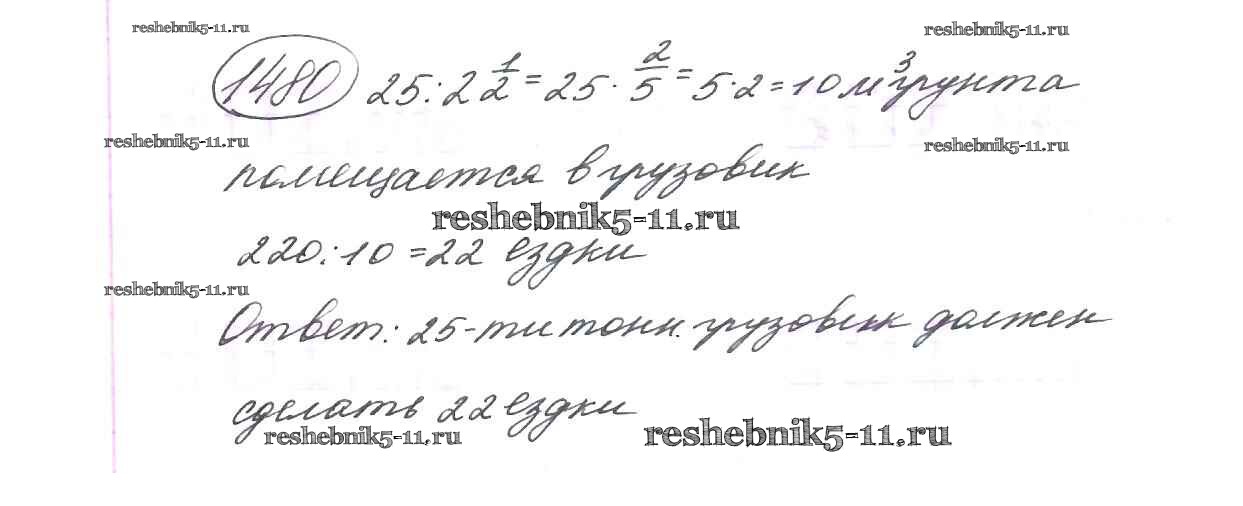 reshebnik5-11.ru
reshebnik5-11.ru
1480 25 : 2 1/2 = 25 · 2/5 = 5 · 2 = 10 м³ грунта
reshebnik5-11.ru
reshebnik5-11.ru
помещается в грузовик
reshebnik5-11.ru
220 : 10 = 22 ездки
reshebnik5-11.ru
Ответ: 25-ти тонн. грузовик должен
сделать 22 ездки
reshebnik5-11.ru
reshebnik5-11.ru